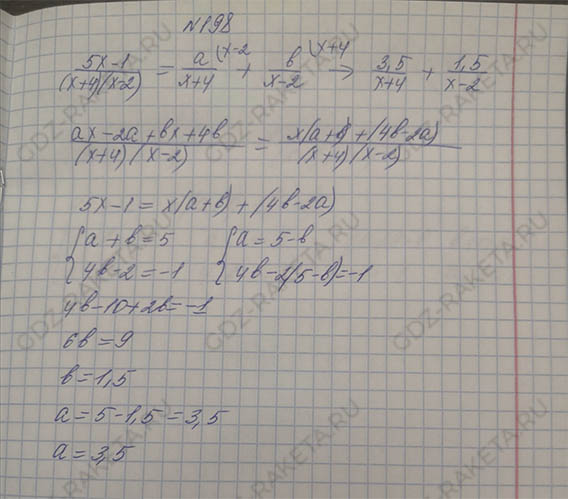 N198
(5x-1)/((x+4)(x-2)) = a/(x+4) (x-2 + b/(x-2) (x+4 → 3,5/(x+4) + 1,5/(x-2)
(ax-2a+bx+4b)/((x+4)(x-2)) = (x(a+b)+(4b-2a))/((x+4)(x-2))
5x-1 = x(a+b)+(4b-2a)
{a+b=5 {a=5-b
{4b-2=-1 {4b-2(5-b)=-1
4b-10+2b=-1
6b=9
b=1,5
a=5-1,5=3,5
a=3,5
GDZ-RAKETA.RU